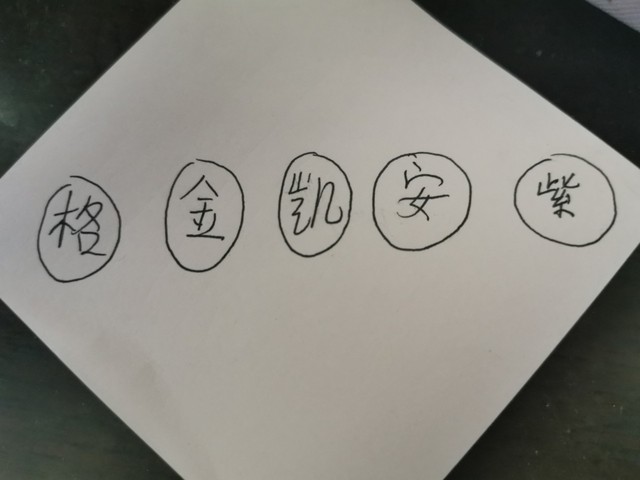 格 金 凯 安 紫